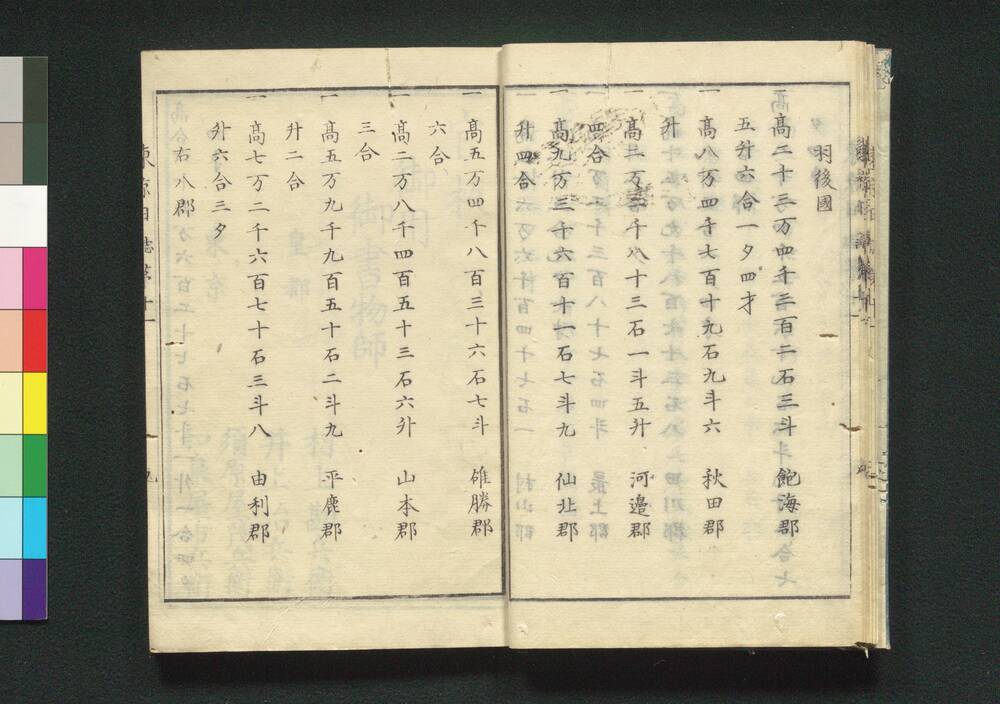 羽後國
一 高二十三万四千三百二石三斗 飽海郡
五升六合一夕四才
一 高八万四千七百十九石九斗六 秋田郡
升
一 高二万三千八十三石一斗五升 河邉郡
四合
一 高九万三千六百十一石七斗九 仙北郡
升四合
一 高五万四千八百三十六石七斗 雄勝郡
六合
一 高二万八千四百五十三石六升 山本郡
三合
一 高五万九千九百五十石二斗九 平鹿郡
升二合
一 高七万二千六百七十石三斗八 由利郡
升六合三夕